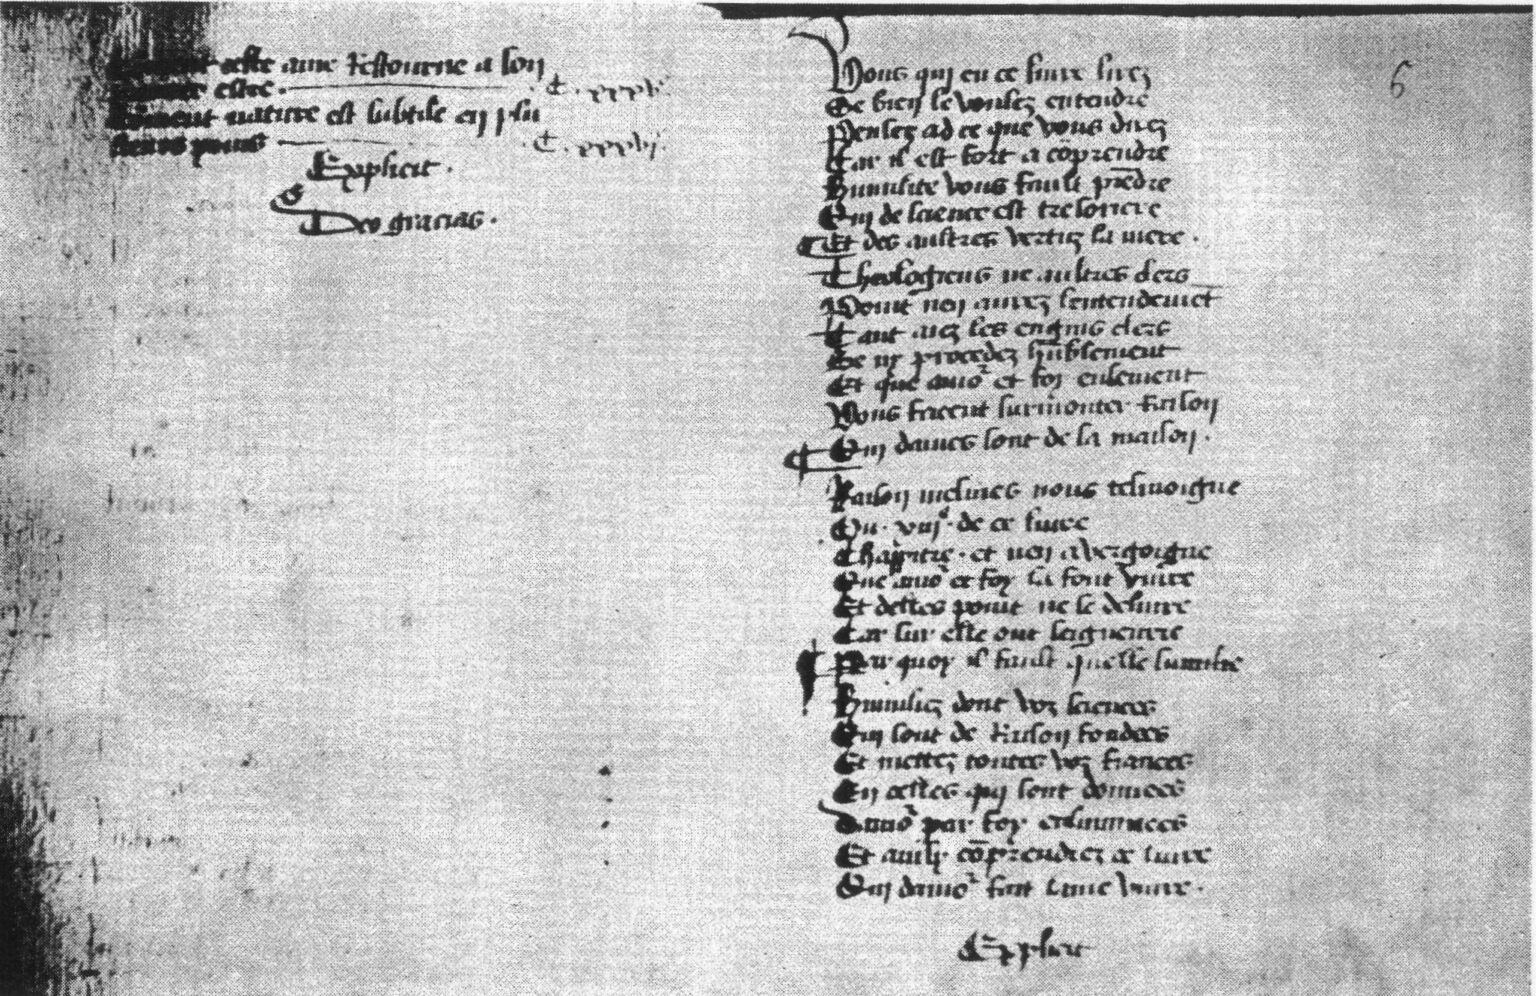 ceste ame restourne a son
estre.
Comment nature est subtile en plu
sieurs poins
Explicit.
Deo gracias.
6
Vous qui en ce livre lirez
Se bien le voulez entendre
Pensez ad ce que vous direz
Car il est fort a coprendre
Humilite vous fault prēdre
Qui de science est tresoriere
Et des aultres vertuz la mere.
Theologiens ne aultres clers
Point nen aurez lentendemēt
Tant aiez les engins clers
Se ny procedez hūblement
Et que amor et foy enlement
Vous facent surmonter raison
Qui dames sont de la maison.
Raison mesmes nous tesmoigne
Ou . de ce livre
Chappitre. et non a vergoigne
Que amor et foy la font vivre
Et delles point ne se delivre
Car sur elle ont seigneurie
Par quoy il fault quelle sumilie
Humiliez dont voz sciences
Qui sont de raison fondees
Et mettez toutes voz fiances
En celles qui sont donnees
Damor par foy enluminees
Et ainsy cōprendrez ce livre
Qui damor fait lame vivre.
Explicit